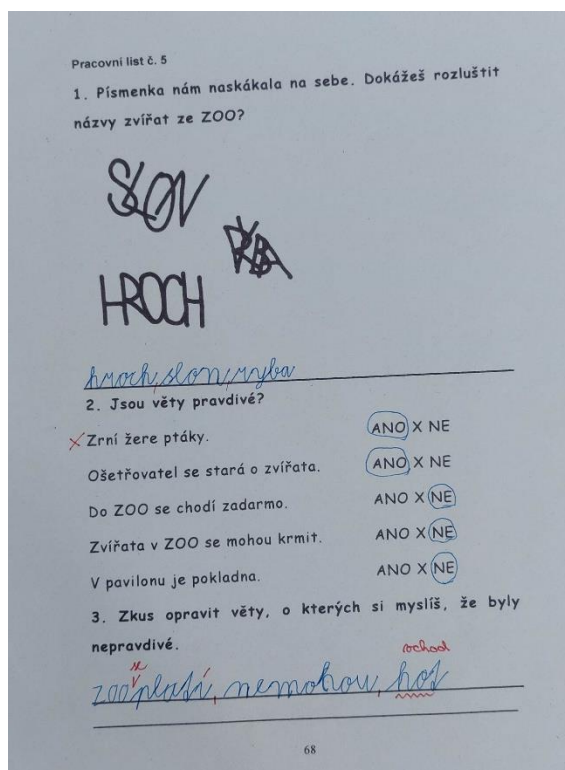 Pracovní list č. 5
1. Písmenka nám naskákala na sebe. Dokážeš rozluštit
názvy zvířat ze ZOO?
SLON
RYBA
HROCH
hroch, slon, ryba
2. Jsou věty pravdivé?
Zrní žere ptáky. ANO X NE
Ošetřovatel se stará o zvířata. ANO X NE
Do ZOO se chodí zadarmo. ANO X NE
Zvířata v ZOO se mohou krmit. ANO X NE
V pavilonu je pokladna. ANO X NE
3. Zkus opravit věty, o kterých si myslíš, že byly
nepravdivé.
se
zoo platí, nemohou,
68